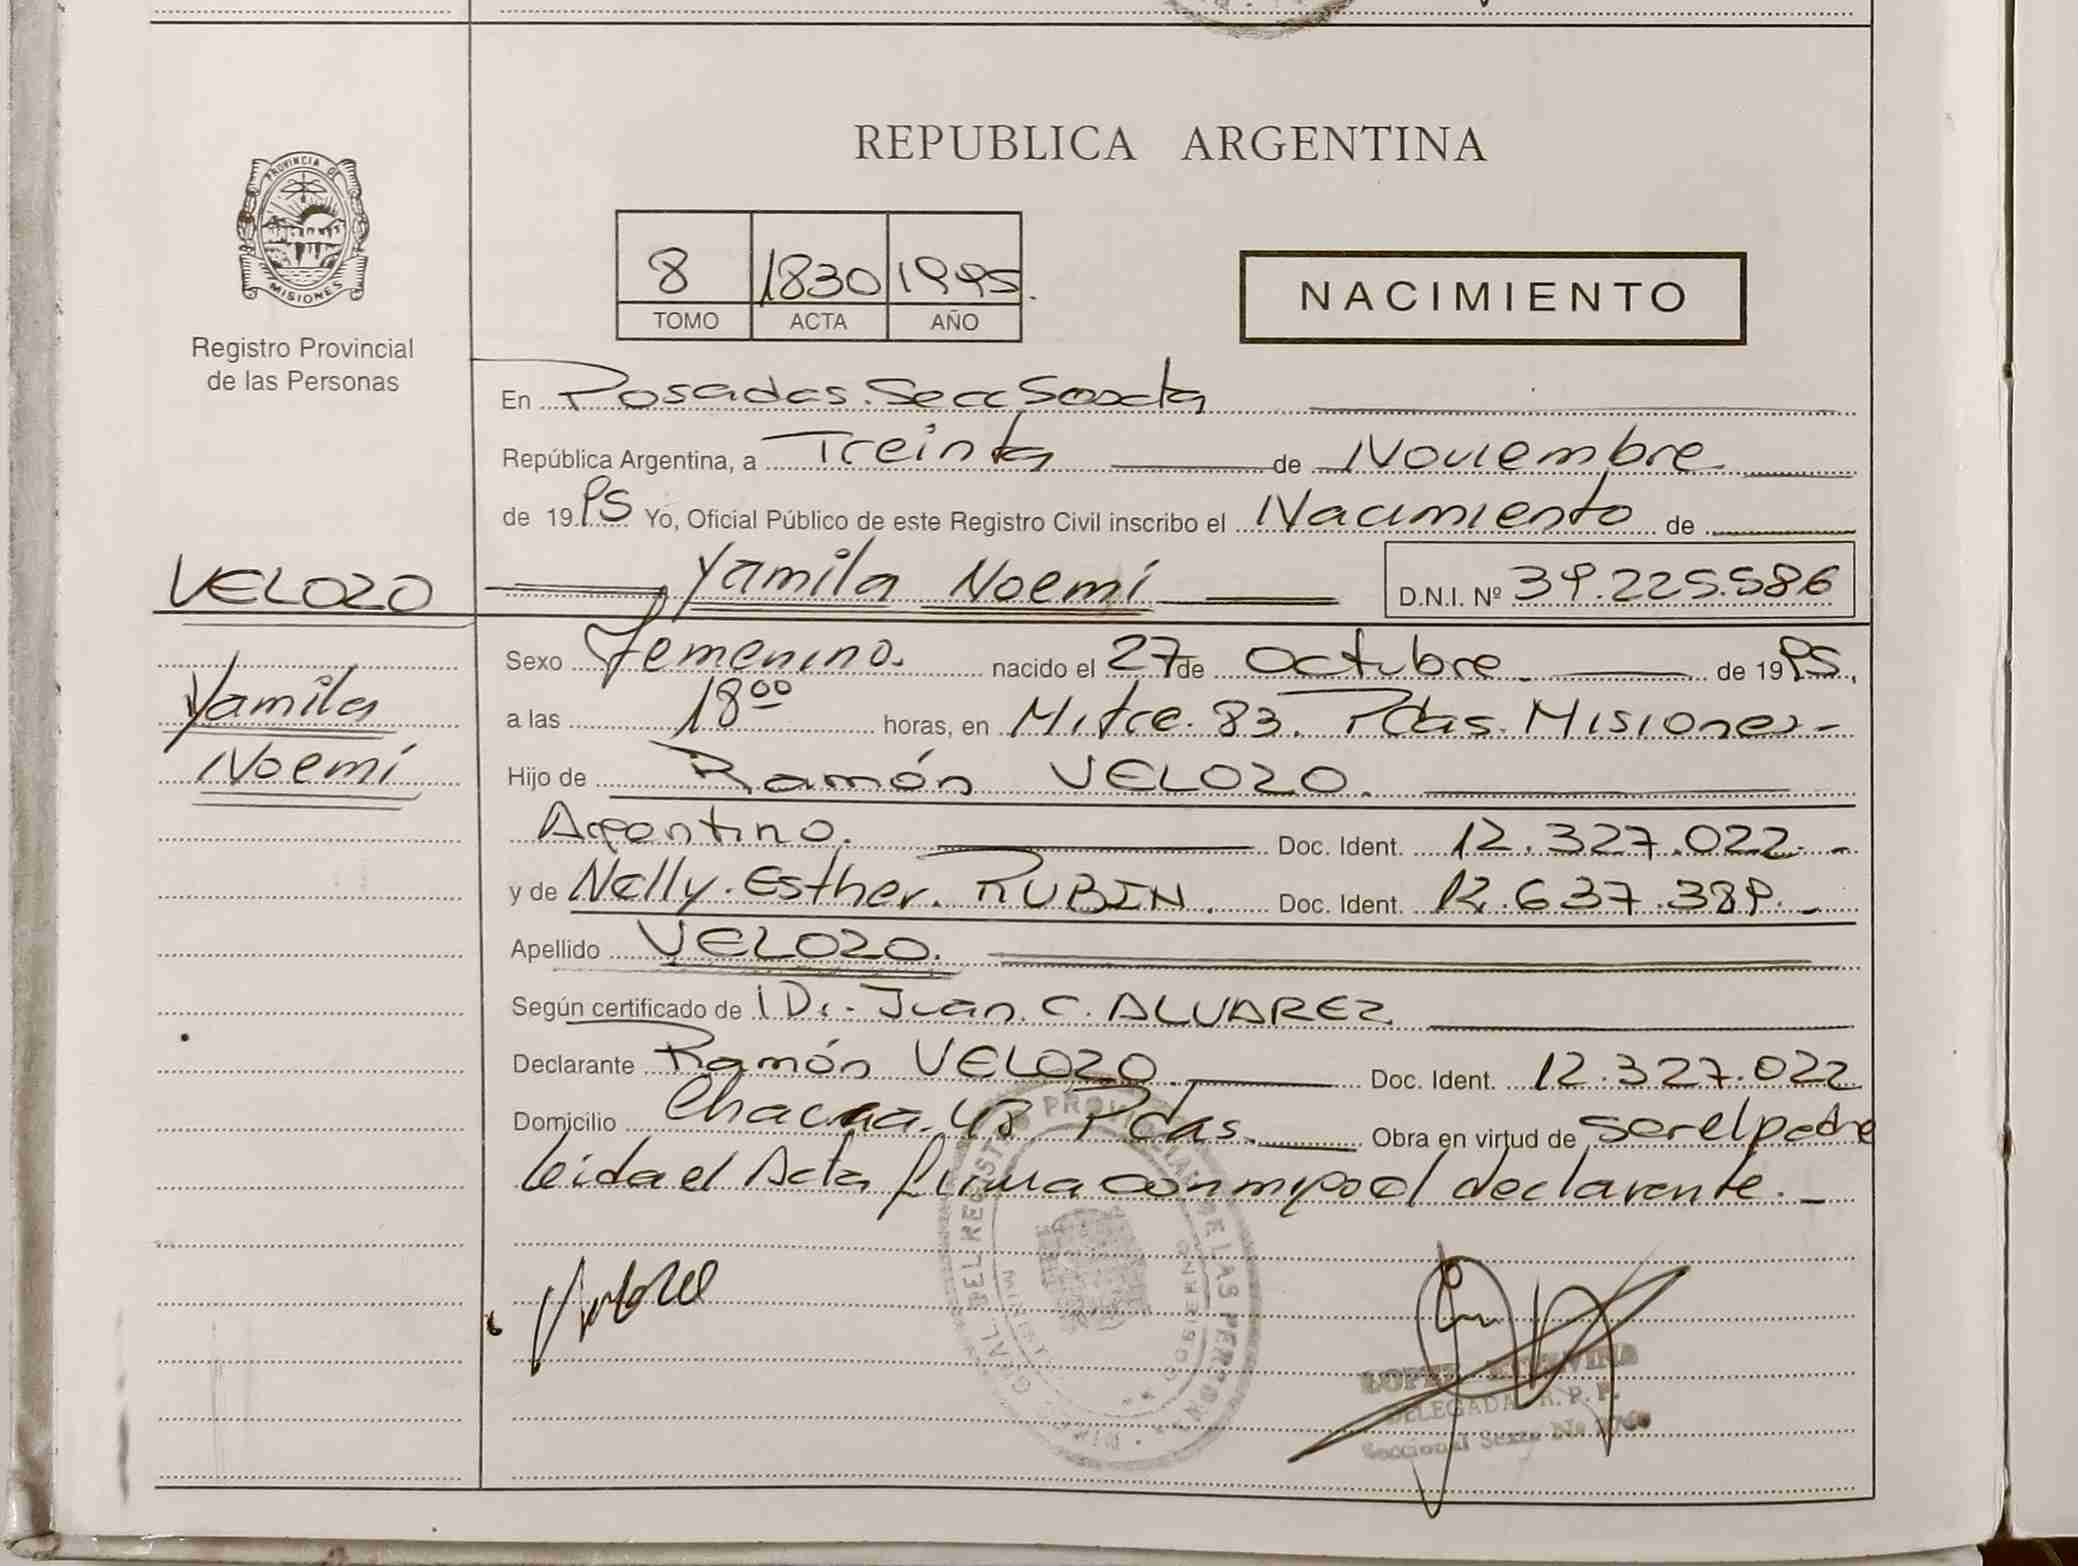 PROVINCIA DE
MISIONES
Registro Provincial
de las Personas
REPUBLICA ARGENTINA
8 1830 1995.
TOMO ACTA AÑO
NACIMIENTO
En Posadas. Secc Sexta
República Argentina, a Treinta de Noviembre
de 1995 Yo, Oficial Público de este Registro Civil inscribo el Nacimiento de
VELOZO Yamila Noemí D.N.I. Nº 39.225.586
Yamila
Noemí
Sexo Femenino. nacido el 27 de Octubre de 1995,
a las 18⁰⁰ horas, en Mitre. 83. Pdas. Misiones-
Hijo de Ramón VELOZO.
Argentino. Doc. Ident. 12.327.022.-
y de Nelly. Esther. RUBIN. Doc. Ident. 12.637.389.-
Apellido VELOZO.
Según certificado de Dr. Juan. C. ALVAREZ
Declarante Ramón VELOZO. Doc. Ident. 12.327.022
Domicilio Chacra. 48 Pdas. Obra en virtud de ser el padre
leida el Acta firma conmigo el declarante.-
DELEGADA R.P.P.
Seccional Sexta Nº